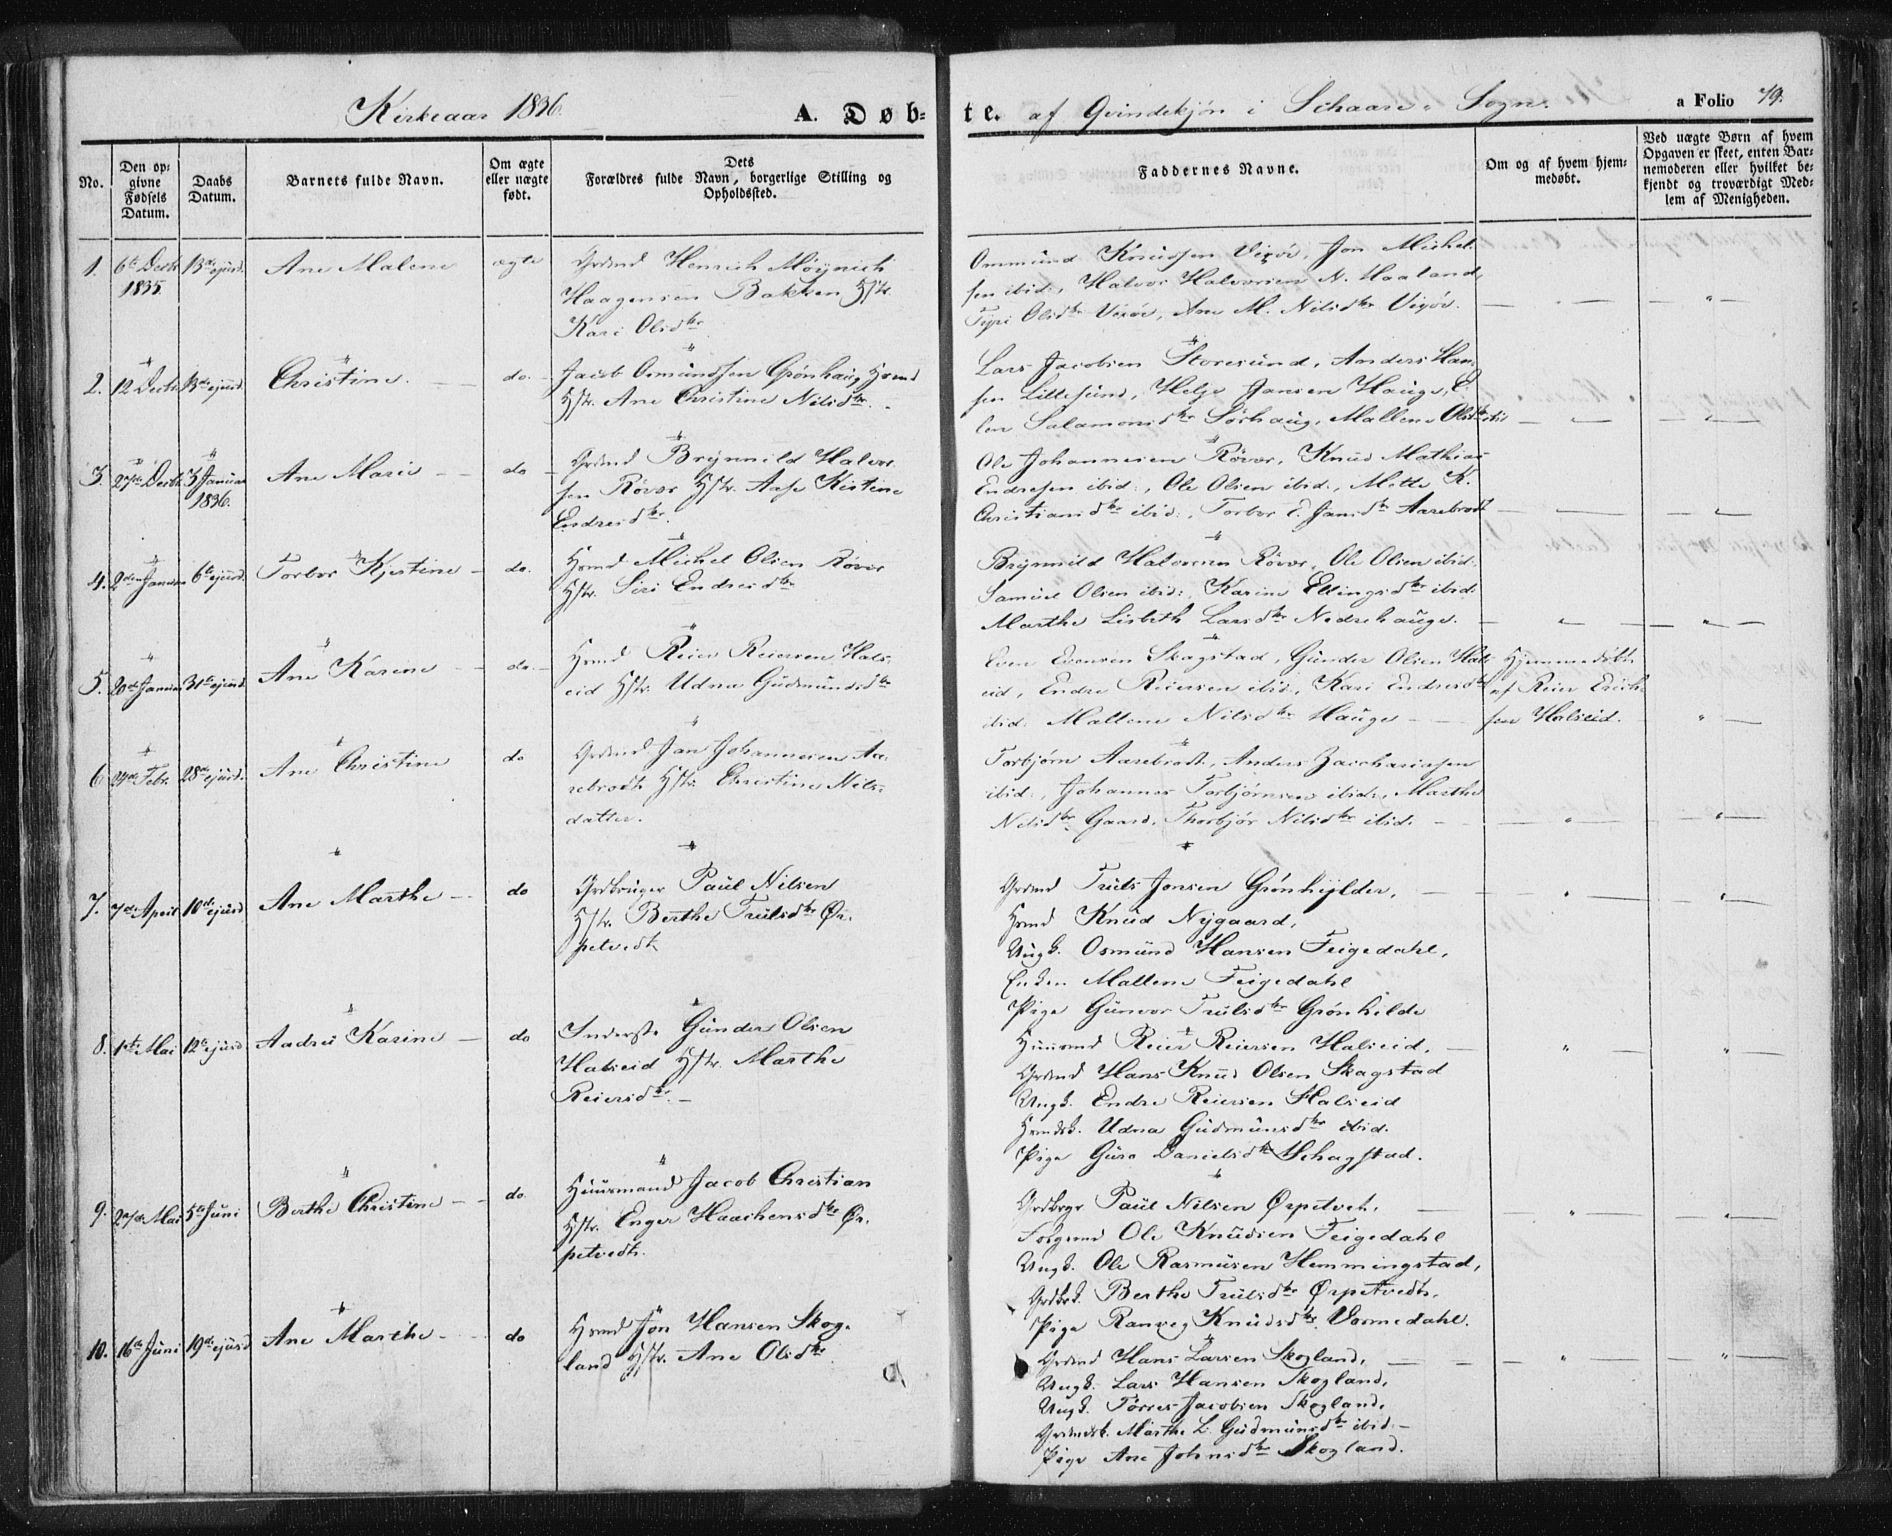 Kirkeaar 1836.
A. Døb-
te. af Qvindekjøn i Schaare Sogn.
a Folio 79.
No.
Den op-
givne
Fødsels
Datum.
Daabs
Datum.
Barnets fulde Navn.
Om ægte
eller uægte
født.
Dets
Forældres fulde Navn, borgerlige Stilling og
Opholdssted.
Faddernes Navne.
Om og af hvem hjem-
medøbt.
Ved uægte Børn af hvem
Opgaven er skeet, enten Bar-
nemoderen eller hvilket be-
kjendt og troværdigt Med-
lem af Menigheden.
1.
6te Decbr
1835.
13de ejusd.
Ane Malene
ægte
Grdmd Henrich Möÿnich
Haagensen Bakken Hstr.
Kari Olsdtr
Ommund Knudsen Vixöe, Jon Michel-
sen ibid:, Halvor Halvorsen N. Haaland,
Olsdtr Vixöe, Ane M. Nilsdtr Vixöe.
2.
12 Decbr
13de ejusd.
Christine.
do.
Jacob Osmundsen Grönhaug Hsmd
Hstr. Ane Christine Nilsdtr.
Lars Jacobsen Storesund, Anders Han-
sen Lillesund, Helje Jansen Hauge, E-
len Salamonsdtr Sörhaug, Mallene Olsdtr ibid
3.
27de Decbr
3 Januar
1836.
Ane Marie
do
Grdmd Brÿnnild Halvor-
sen Rövær Hstr. Aase Kistine
Endresdtr.
Ole Johannesen Rövær, Knud Mathias
Endresen ibid:, Ole Olsen ibid:, Mette K.
Christiansdtr ibid:, Torbor E. Jansdtr Aarebrodt
4.
2den Januar
6te ejusd.
Torbor Kjestine
do.
Hsmd Michel Olsen Rövær
Hstr. Siri Endresdtr
Brÿnnild Halvorsen Rövær, Ole Olsen ibid:
Samuel Olsen ibid:, Karine Ellingsdtr ibid:
Marthe Lisbeth Larsdtr Nedrehauge.
5.
20de Januar
31te ejusd.
Ane Karene
do.
Hsmd Reier Reiersen Hals-
eid Hstr. Udna Gudmundsdtr
Even Evensen Skagstad, Gunder Olsen Hals-
eid, Endre Reiersen ibid:, Kari Endresdtr
ibid: Mallene Nilsdtr Hauge
Hjemmedöbt
af Reier Erich-
sen Halseid.
6
24de Febr.
28de ejusd.
Ane Christine
do
Grdmd Jan Johannesen Aa-
rebrodt Hstr. Christine Nils-
datter.
Torbjörn Aarebrodt, Anders Zachariasen
ibid:, Johannes Torbjörnsen ibid:, Marthe
Nilsdtr Gaard, Thorbjör Nilsdtr ibid.
7.
7de April
10de ejusd
Ane Marthe
do
Grdbruger Paul Nilsen
Hstr. Berthe Trulsdtr Ør-
petvedt
Grdmd Truls Jonsen Grönhÿlder,
Hsmd Knud Nÿgaard,
Ungk. Osmund Hansen Feigedahl,
Enken Mallene Feigedahl
Pige Gunvor Trulsdtr Grönhilde
8.
1ste Mai
12te ejusd
Aadrei Karine
do
Inderste Gunder Olsen
Halseid Hstr. Marthe
Reiersdtr.
Huusmd Reier Reiersen Halseid,
Grdmd Hans Knud Olsen Skagstad
Ungk. Endre Reiersen Halseid
Hsmdsk. Udna Gudmunsdtr ibid.
Pige Guro Danielsdtr Schagstad.
9.
27de Mai
5te Juni
Berthe Christine
do
Huusmand Jacob Christian
Hstr. Enger Haachensdtr Ør-
petvedt.
Grdbrgr Paul Nilsen Ørpetvet,
Ole Knudsen Feigedahl
Ungk. Ole Rasmusen Hemmingstad,
Grdbrk. Berthe Trulsdtr Ørpetvedt,
Pige Ranveg Knudsdtr Vormedahl.
10.
16te Juni
19de ejusd
Ane Marthe
do
Hsmd Jon Hansen Skog-
land Hstr. Ane Olsdtr
Grdmd Hans Larsen Skogland,
Ungk. Lars Hansen Skogland,
Ungk. Törres Jacobsen Skogland,
Grdmdsk. Marthe L. Gudmunsdtr ibid.
Pige Ane Johnsdtr Skogland.